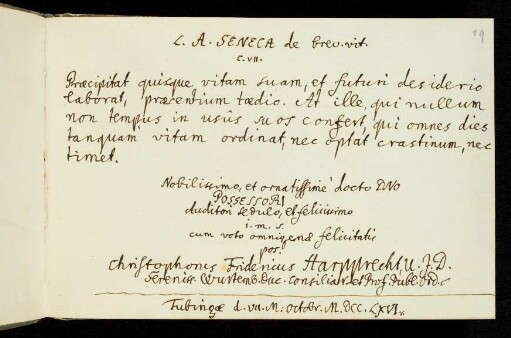 19
L. A. SENECA de brev. vit.
C. VII.
Præcipitat quisque vitam suam, et futuri desiderio
laborat, præsentium tædio. At ille, qui nullum
non tempus in usûs suos confert, qui omnes dies
tanquam vitam ordinat, nec optat crastinum, nec
timet.
Nobilissimo, et ornatissime docto DNO
POSSESSORI
Auditori sedulo, et felicissimo
i. m. s.
cum voto omnigenæ felicitatis
pos.
Christophorus Fridericus Harpprecht, U. J. D.
Sereniss. Wurtemb. Duc. Consiliar. et Prof. Publ. Ord.
Tubingæ d. VII. M. Octobr. M.DCC.LXVI.